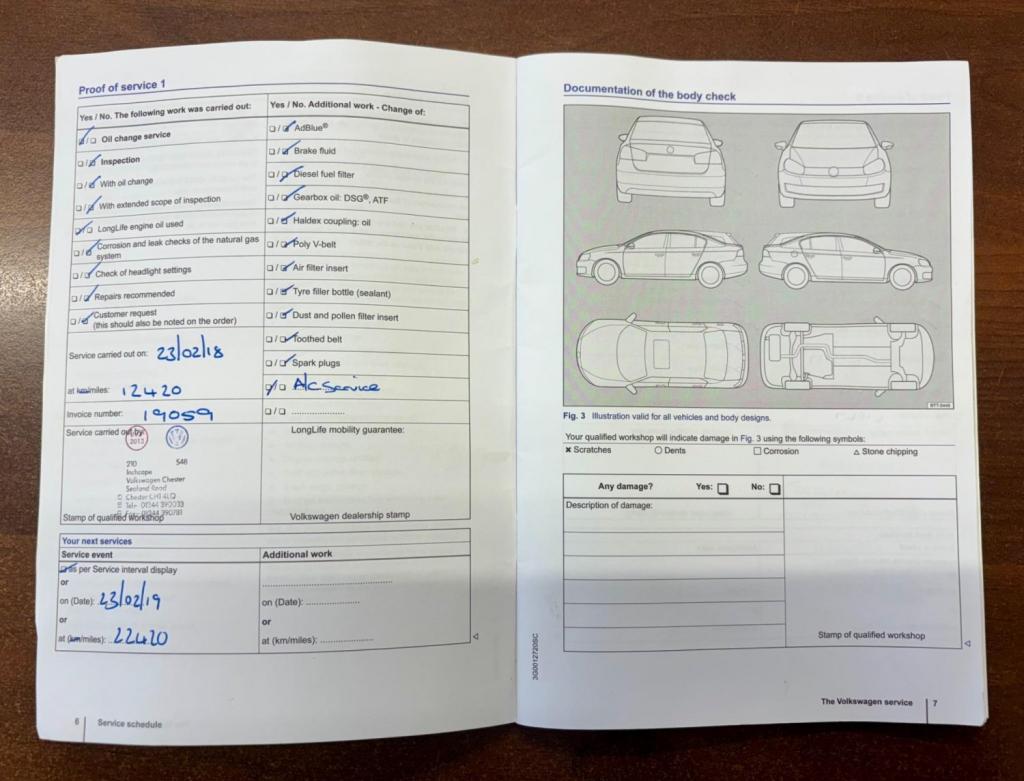 Proof of service 1
Yes / No. The following work was carried out:
☑/☐ Oil change service
☐/☑ Inspection
☐/☑ With oil change
☐/☑ With extended scope of inspection
☑/☐ LongLife engine oil used
☐/☑ Corrosion and leak checks of the natural gas
system
☐/☑ Check of headlight settings
☐/☑ Repairs recommended
☐/☑ Customer request
(this should also be noted on the order)
Service carried out on: 23/02/18
at km/miles: 12420
Invoice number: 19059
Service carried out by:
2013
210 548
Inchcape
Volkswagen Chester
Sealand Road
Chester CH1 4LQ
Stamp of qualified workshop
Yes / No. Additional work - Change of:
☐/☑ AdBlue®
☐/☑ Brake fluid
☐/☑ Diesel fuel filter
☐/☑ Gearbox oil: DSG®, ATF
☐/☑ Haldex coupling: oil
☐/☑ Poly V-belt
☐/☑ Air filter insert
☐/☑ Tyre filler bottle (sealant)
☐/☑ Dust and pollen filter insert
☐/☑ Toothed belt
☐/☑ Spark plugs
☑/☐ A/C Service
☐/☐ .....................
LongLife mobility guarantee:
Volkswagen dealership stamp
Your next services
Service event
☑ as per Service interval display
or
on (Date): 23/02/19
or
at (km/miles): 22420
Additional work
on (Date): .....................
or
at (km/miles): .....................
6 Service schedule
Documentation of the body check
Fig. 3 Illustration valid for all vehicles and body designs.
Your qualified workshop will indicate damage in Fig. 3 using the following symbols:
✖ Scratches ○ Dents □ Corrosion △ Stone chipping
Any damage? Yes: ☐ No: ☐
Description of damage:
Stamp of qualified workshop
3G0012720SC
The Volkswagen service 7